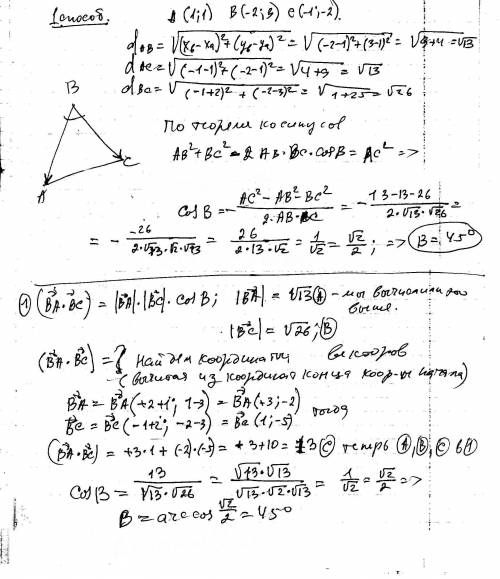 1 способ. A (1;1) B (-2;3) C (-1;-2).
d AB = √(xв-xа)²+(yв-yа)² = √(-2-1)²+(3-1)² = √9+4 = √13
d AC = √(-1-1)²+(-2-1)² = √4+9 = √13
d BC = √(-1+2)²+(-2-3)² = √1+25 = √26
B
A
C
По теореме косинусов
AB²+BC²-2AB·BC·cosB = AC² =>
cosB = - AC²-AB²-BC² / 2·AB·BC = - 13-13-26 / 2·√13·√26 =
= - -26 / 2·√13·√2·√13 = 26 / 2·13·√2 = 1/√2 = √2/2; => B=45°
① (BA·BC) = |BA|·|BC|·cosB; |BA| = √13 Ⓐ - мы вычислили это
выше.
|BC| = √26; Ⓑ
(BA·BC) = ? Найдем координаты векторов
(вычитая из координат конца коор-ты начала)
BA = BA(+2+1; 1-3) = BA(+3;-2)
BC = BC(-1+2; -2-3) = BC(1;-5) тогда
(BA·BC) = +3·1+(-2)·(-5) = +3+10 = 13 Ⓒ теперь Ⓐ, Ⓑ, Ⓒ в ①
cosB = 13 / √13·√26 = √13·√13 / √13·√2·√13 = 1/√2 = √2/2 =>
B = arccos √2/2 = 45°